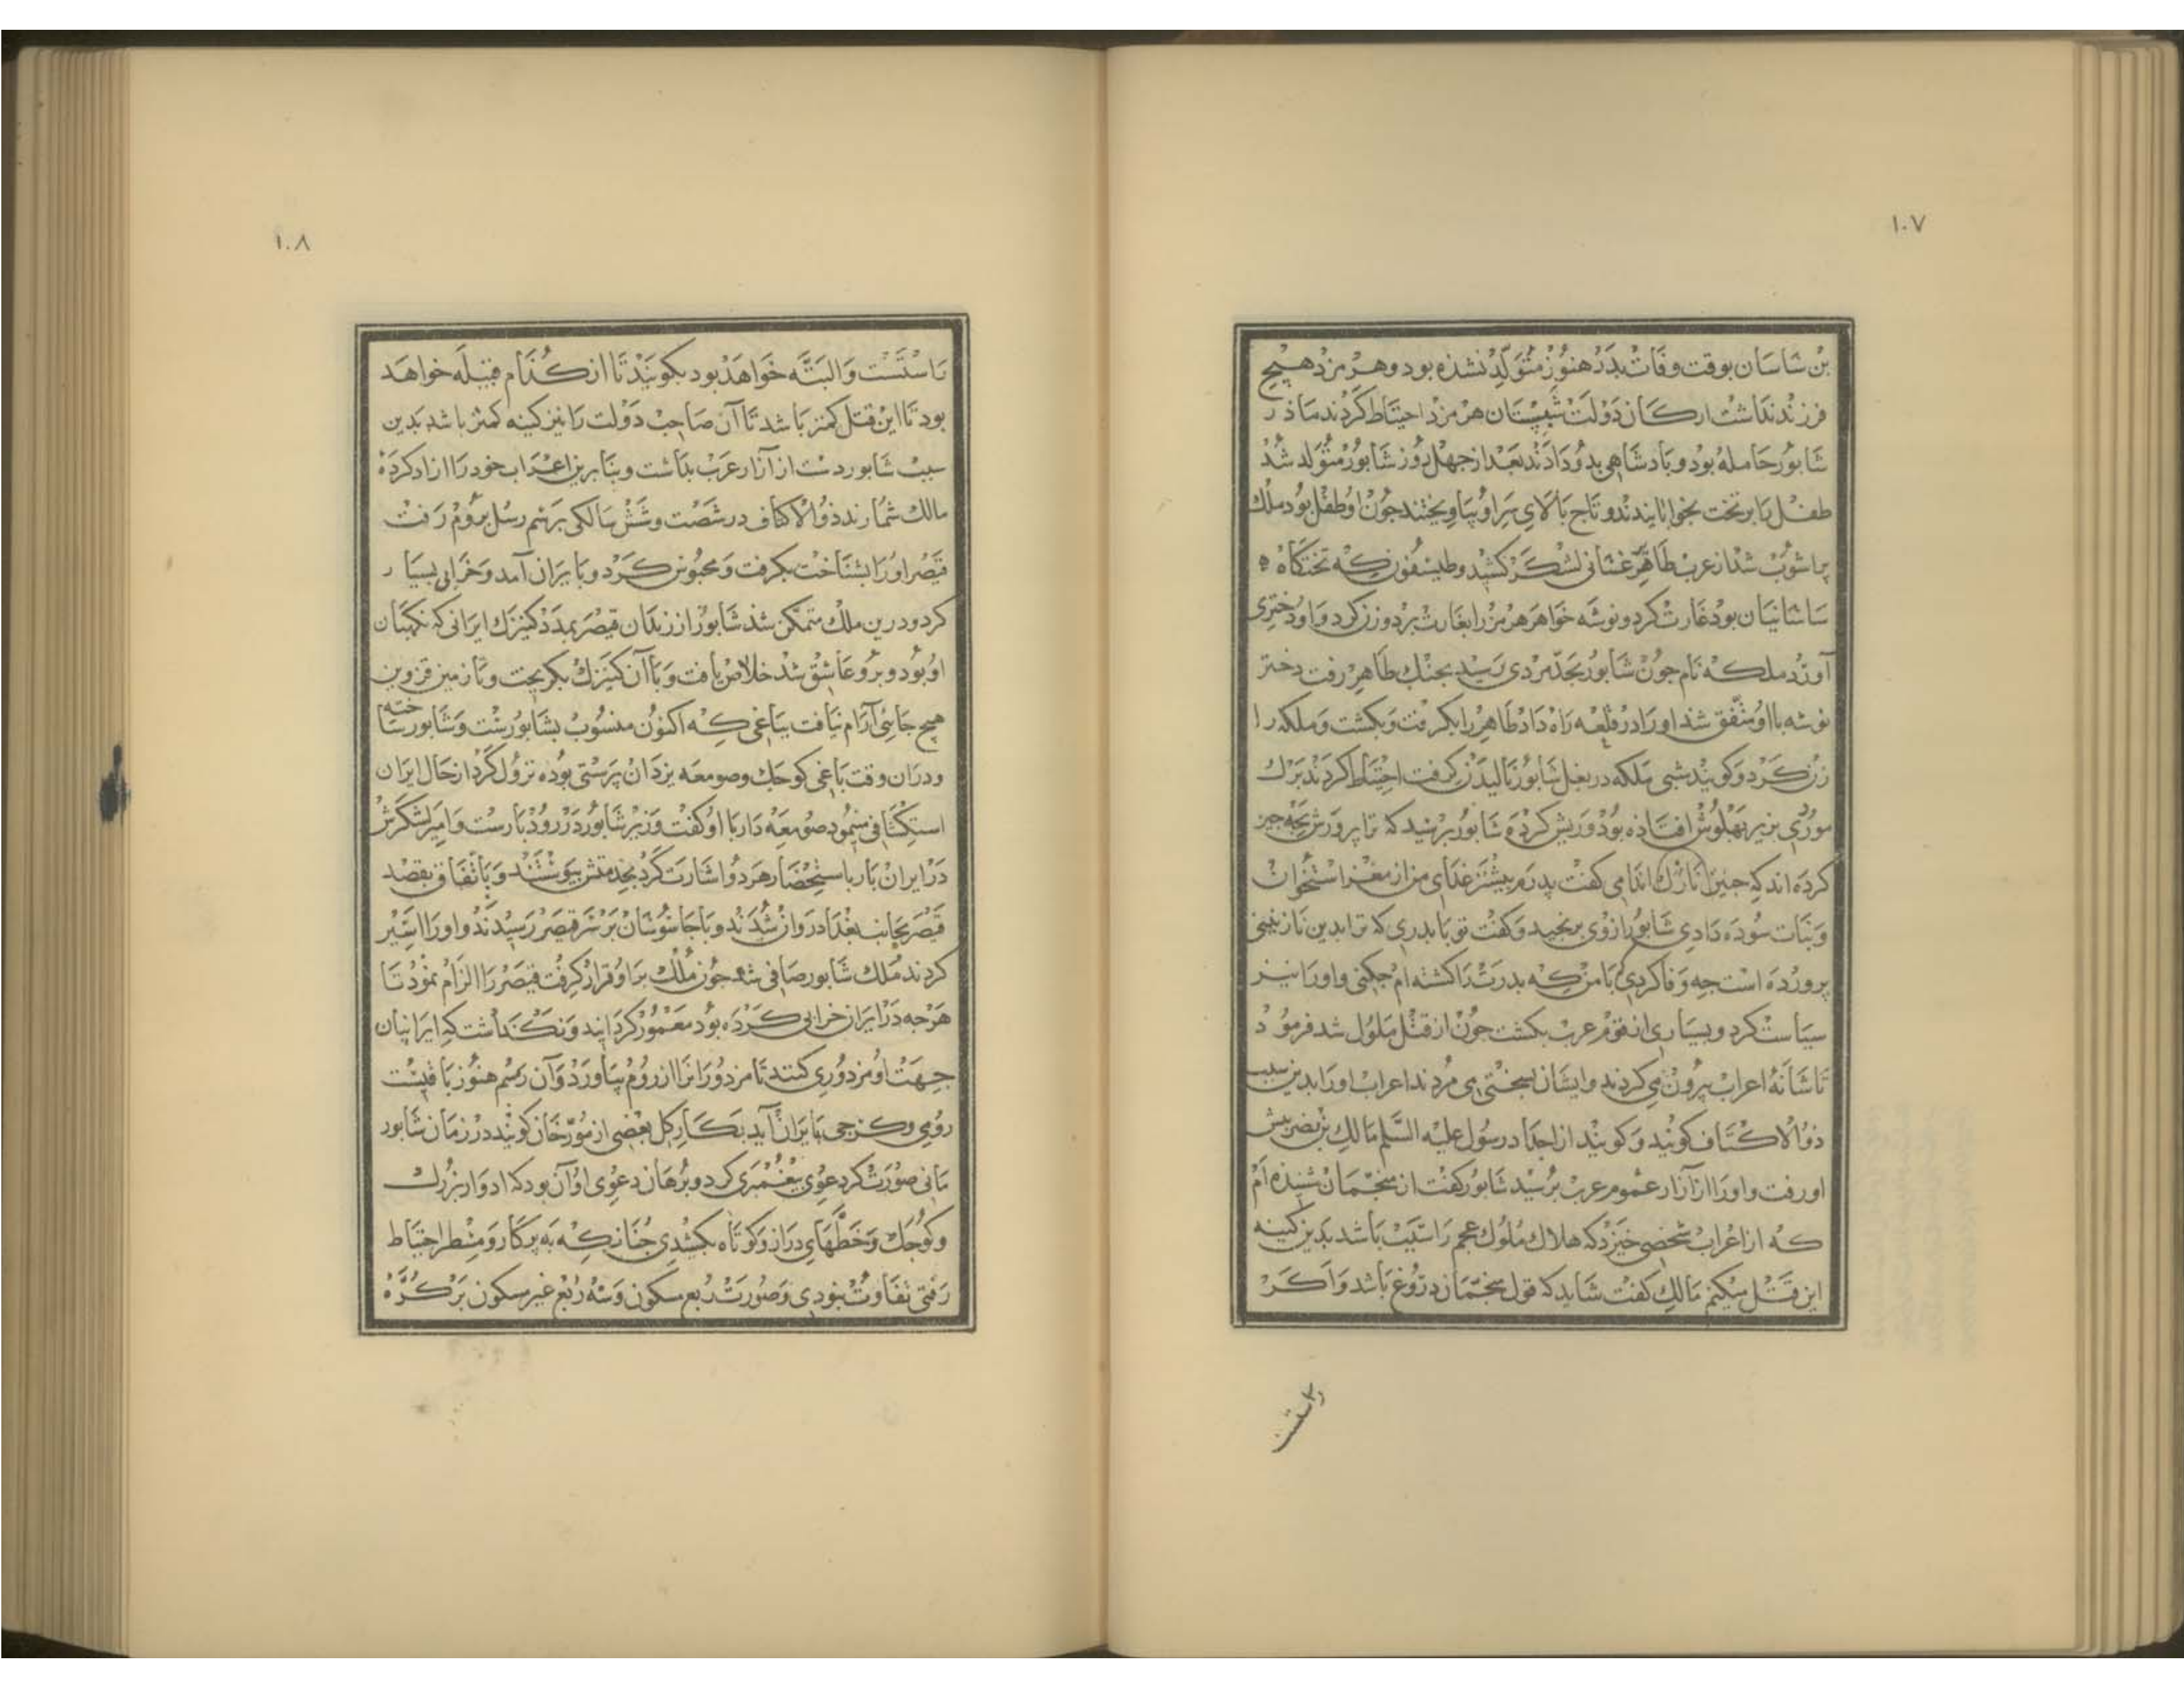 ١٠٧
بن ساسان بوقت وفات بدر هنوز متولد نشده بود و هرمزد هیچ
فرزند نداشت ارکان دولت شبستان هرمزد احتیاط کردند ماذر
شابور حامله بود و بادشاهی بدو دادند بعد از جهل روز شابور متولد شد
طفل را بر تخت بخوابانیدند و تاج بالای سر او بیاویختند جون او طفل بود ملک
براشوب شد از عرب طاهر غسانی لشکر کشید و طیسفون که تختکاه
ساسانیان بود غارت کرد و نوشه خواهر هرمز را بغارت برد و زن کرد و او دختری
آورد ملکه نام جون شابور بحد مردی رسید بجنک طاهر رفت دختر
نوشه با او متفق شد او را در قلعه راه داد طاهر را بکرفت و بکشت و ملکه را
زن کرد و کویند شبی ملکه در بغل شابور نالیدن کرفت احتیاط کردند برک
موردی بزیر بهلوش افتاذه بود و ریش کرده شابور برسید که ترا پرورش بجه جیز
کرده اند که جنین نازک اندامی کفت پدرم بیشتر غذای من از مغز استخوان
و نبات سوده دادی شابور ازوی برنجید و کفت تو با بدری که ترا بدین نازنینی
پرورده است جه وفا کردی با من که بدرت را کشته ام جکنی و او را نیز
سیاست کرد و بسیاری از قوم عرب بکشت جون از قتل ملول شد فرمود
تا شانهٔ اعراب بیرون می کردند و ایشان بسختی می مردند اعراب او را بدین سبب
ذو الاکتاف کویند و کویند از اجداد رسول علیه السلم مالک بن نضر پیش
او رفت و او را از آزار عموم عرب برسید شابور کفت از منجمان شنیده ام
که از اعراب شخصی خیزد که هلاک ملوک عجم را سبب باشد بدین کینه
این قتل میکنم مالک کفت شاید که قول منجمان دروغ باشد و اکر
راستست
١٠٨
راستست و البته خواهد بود بکویند تا از کدام قبیله خواهد
بود تا این قتل کمتر باشد تا آن صاحب دولت را نیز کینه کمتر باشد بدین
سبب شابور دست از آزار عرب بداشت و بنابرین اعراب خود را ازاد کردهٔ
مالک شمارند ذو الاکتاف در شصت و شش سالکی برسم رسل بروم رفت
قیصر او را بشناخت بکرفت و محبوس کرد و با یران آمد و خرابی بسیار
کرد و درین ملک متمکن شد شابور از زندان قیصر بمدد کنیزک ایرانی که نکهبان
او بود و برو عاشق شد خلاص یافت و با آن کنیزک بکریخت و تا زمین قزوین
هیچ جائی آرام نیافت بباغی که اکنون منسوب بشابورست و شابور ساخته
و دران وقت باغی کوجک و صومعه یزدان پرستی بوده نزول کرد از حال ایران
استکشافی مینمود صومعه دار با او کفت وزیر شابور در رودبارست و امیر لشکرش
در ایران بار باستحضار هر دو اشارت کرد بخدمتش بیوستند و باتفاق بقصد
قیصر بجانب بغداد روان شدند و با جاسوسان بر سر قیصر رسیدند و او را اسیر
کردند ملک شابور صافی شد جون ملک بر او قرار کرفت قیصر را الزام نمود تا
هرجه در ایران خرابی کرده بود معمور کردانید و نکذاشت که ایرانیان
جهت او مزدوری کنند تا مزدوران را از روم بیاورد و آن رسم هنوز باقیست
رومی و کرجی بایران آید بکار کل بعضی از مورخان کویند در زمان شابور
مانی صورتکر دعوی بیغمبری کرد و برهان دعوی او آن بود که ادوار بزرک
و کوجک و خطهای دراز و کوتاه بکشیدی جنانکه به پرکار و مسطر احتیاط
رفتی تفاوت نبودی و صورت ربع مسکون و سه ربع غیر مسکون بر کره